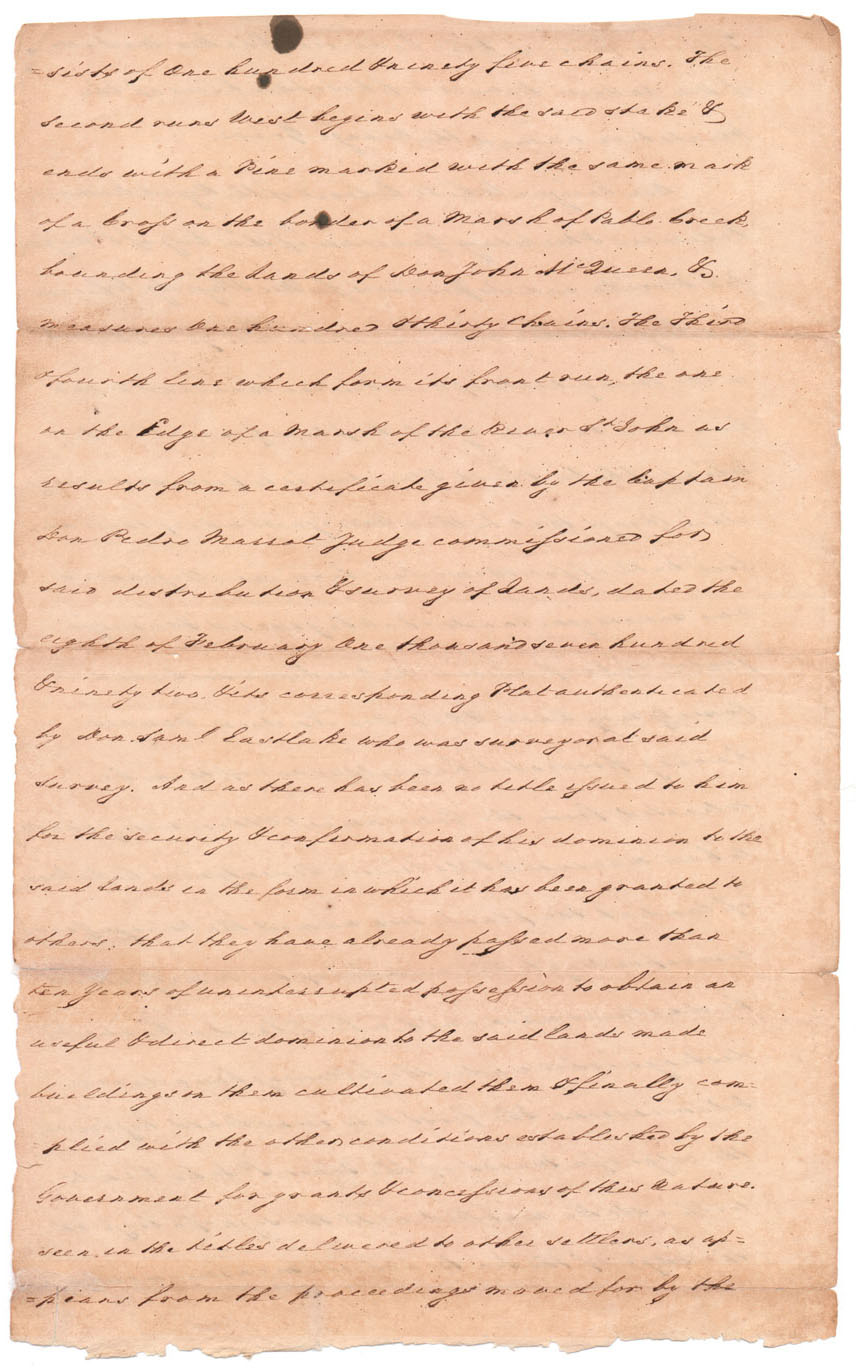 =sists of One hundred & ninety five chains. The
second runs West begins with the said stake &
ends with a Pine marked with the same mark
of a Cross on the border of a Marsh of Pablo Creek,
bounding the Lands of Don John McQueen, &
measures One hundred & thirty Chains. The Third
& fourth Line which form its front run, the one
on the Edge of a Marsh of the River St John as
results from a certificate given by the Captain
Don Pedro Marrot Judge commissioned for
said distribution & survey of Lands, dated the
eighth of February One thousand seven hundred
& ninety two & its corresponding Plat authenticated
by Don Saml Eastlake who was surveyor at said
survey. And as there has been no title issued to him
for the security & confirmation of his dominion to the
said Lands in the form in which it has been granted to
others; that they have already passed more than
ten Years of uninterrupted possession to obtain an
useful & direct dominion to the said lands made
buildings on them cultivated them & finally com=
plied with the other conditions established by the
Government for grants & concessions of this Nature.
seen in the titles delivered to other settlers, as ap=
=pears from the proceedings moved for by the